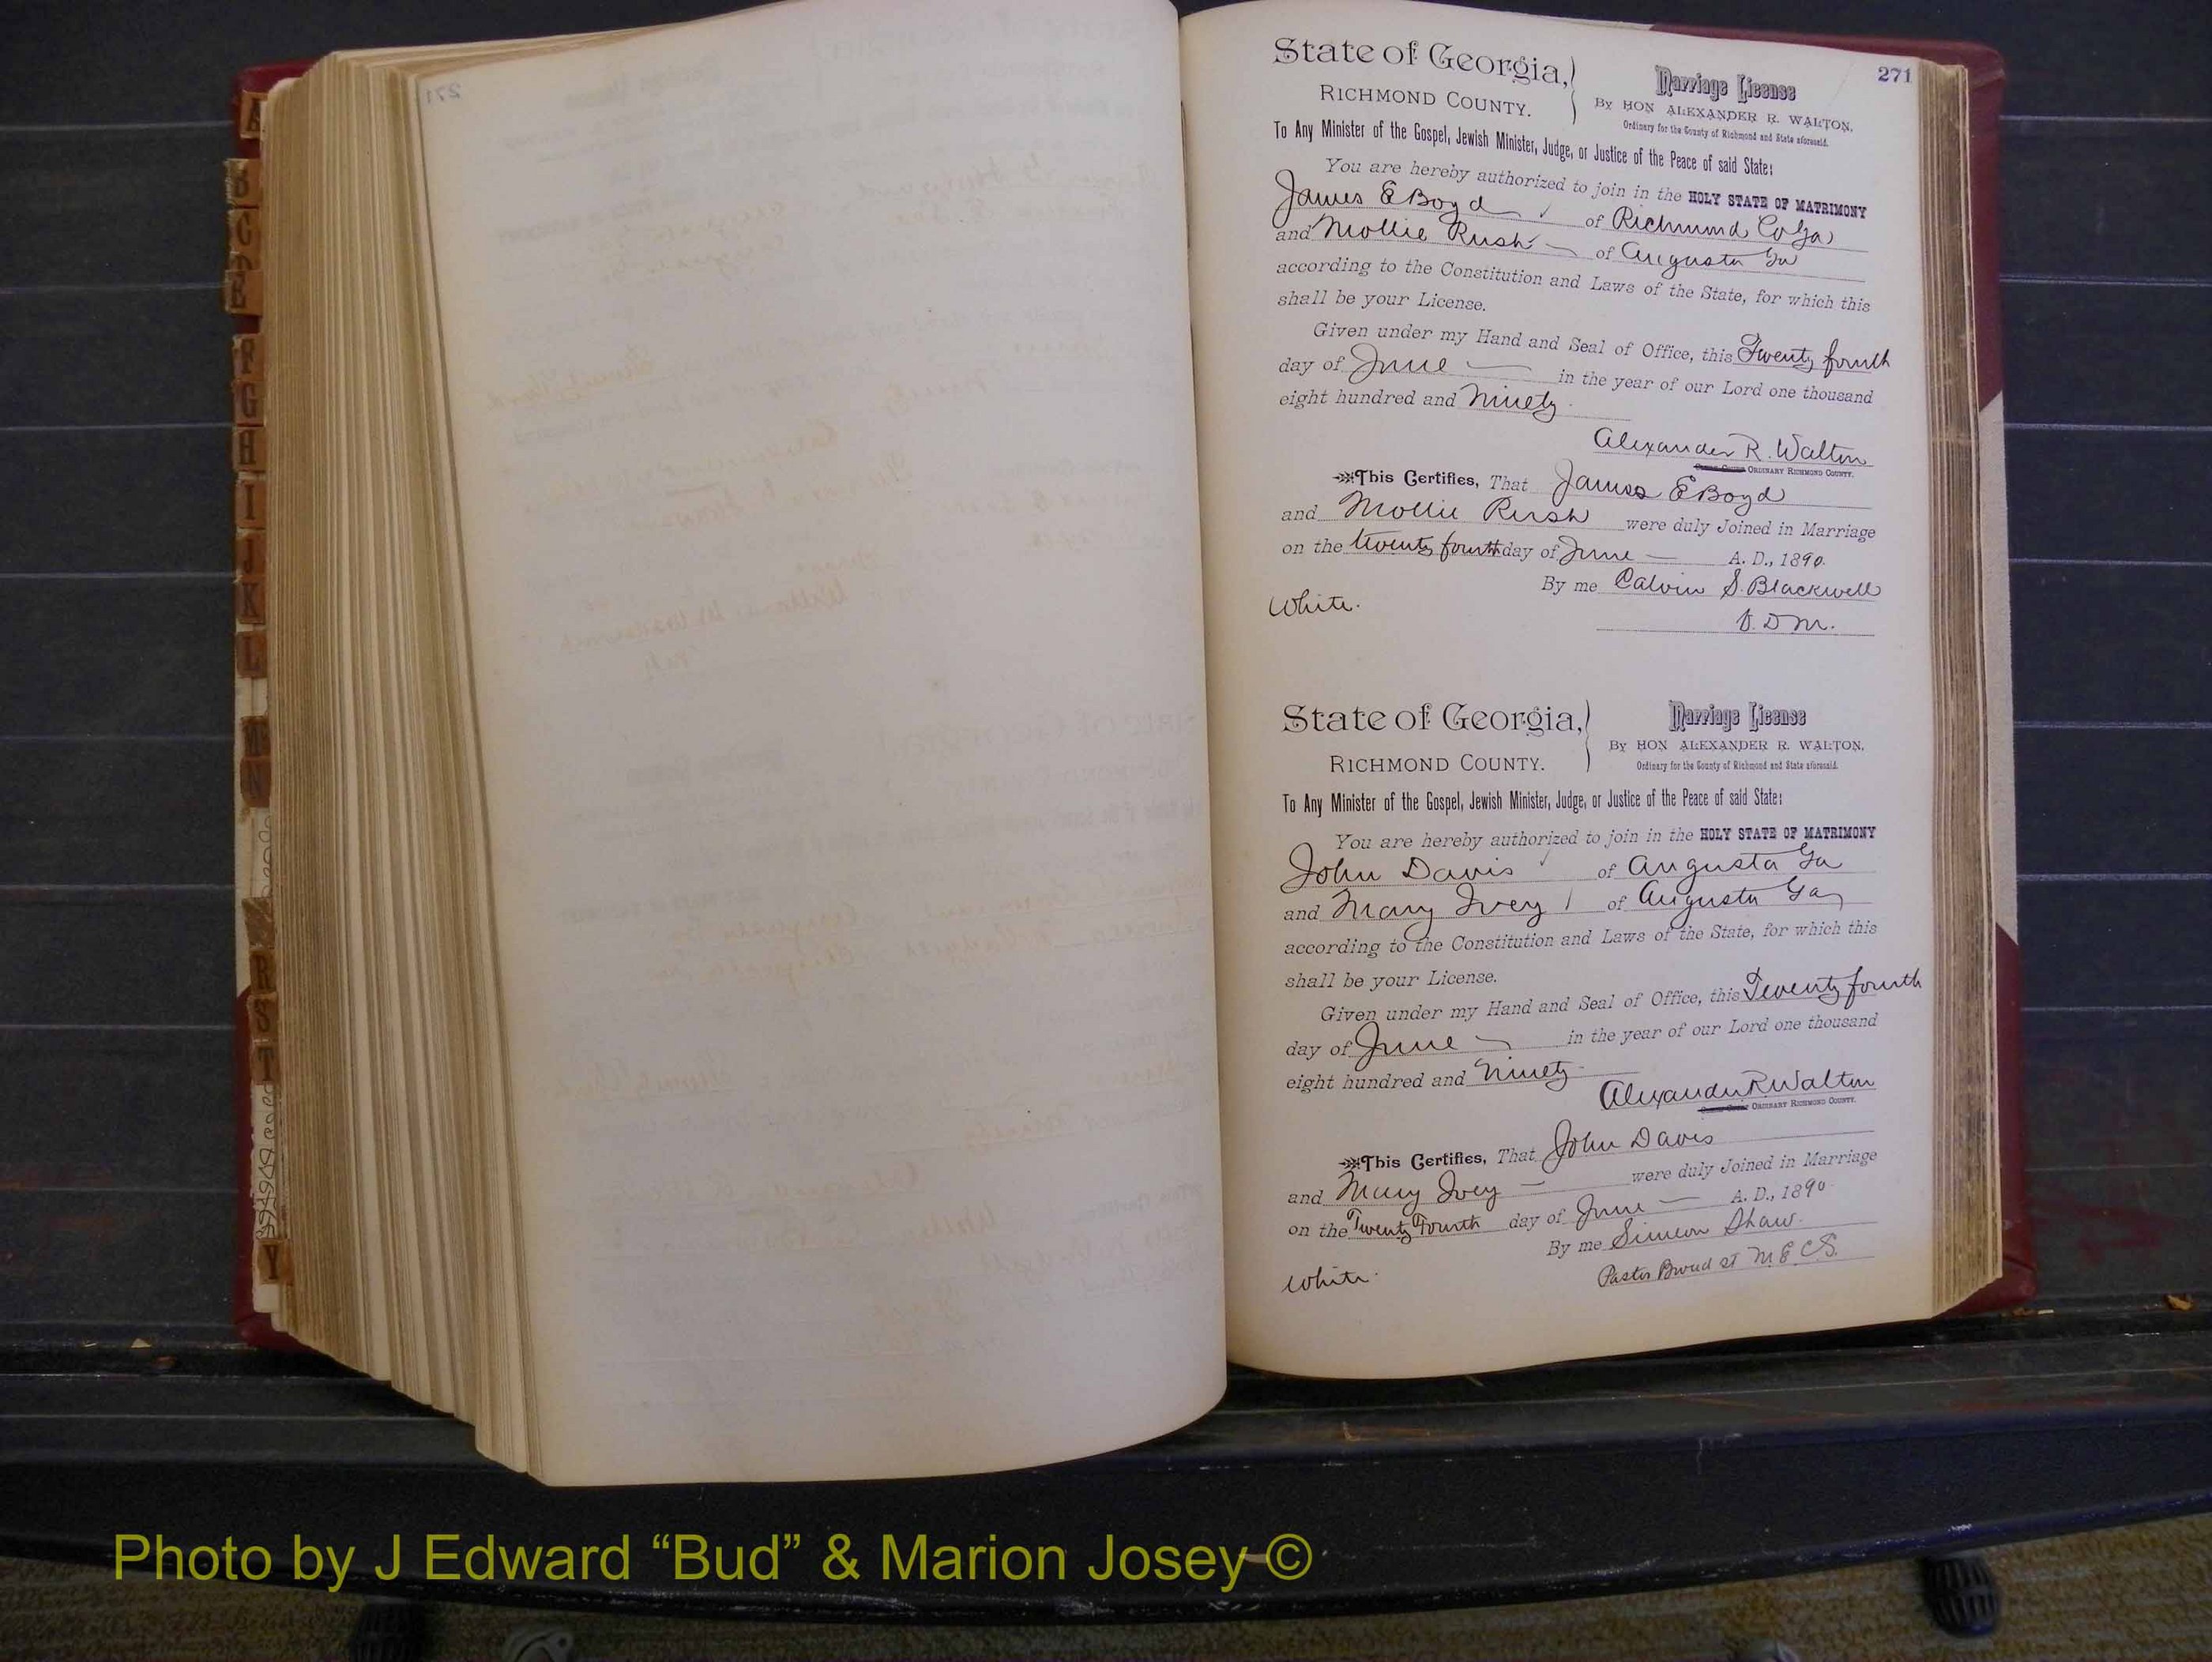 271
State of Georgia,
RICHMOND COUNTY.
Marriage License
By HON ALEXANDER R. WALTON,
Ordinary for the County of Richmond and State aforesaid.
To Any Minister of the Gospel, Jewish Minister, Judge, or Justice of the Peace of said State:
You are hereby authorized to join in the HOLY STATE OF MATRIMONY
James E Boyd of Richmond Co Ga
and Mollie Rush of Augusta Ga
according to the Constitution and Laws of the State, for which this
shall be your License.
Given under my Hand and Seal of Office, this Twenty fourth
day of June in the year of our Lord one thousand
eight hundred and Ninety
Alexander R. Walton
ORDINARY RICHMOND COUNTY.
This Certifies, That James E Boyd
and Mollie Rush were duly Joined in Marriage
on the twenty fourth day of June A. D., 1890.
By me Calvin S. Blackwell
V. D M.
White.
State of Georgia,
RICHMOND COUNTY.
Marriage License
By HON ALEXANDER R. WALTON,
Ordinary for the County of Richmond and State aforesaid.
To Any Minister of the Gospel, Jewish Minister, Judge, or Justice of the Peace of said State:
You are hereby authorized to join in the HOLY STATE OF MATRIMONY
John Davis of Augusta Ga
and Mary Ivey of Augusta Ga
according to the Constitution and Laws of the State, for which this
shall be your License.
Given under my Hand and Seal of Office, this Twenty fourth
day of June in the year of our Lord one thousand
eight hundred and Ninety
Alexander R Walton
ORDINARY RICHMOND COUNTY.
This Certifies, That John Davis
and Mary Ivey were duly Joined in Marriage
on the Twenty Fourth day of June A. D., 1890
By me Simeon Shaw.
Pastor Broad st M. E. C. S.
White.
A
B
C
D
E
F
G
H
I
J
K
L
M
N
R
S
T
Y
Photo by J Edward “Bud” & Marion Josey ©